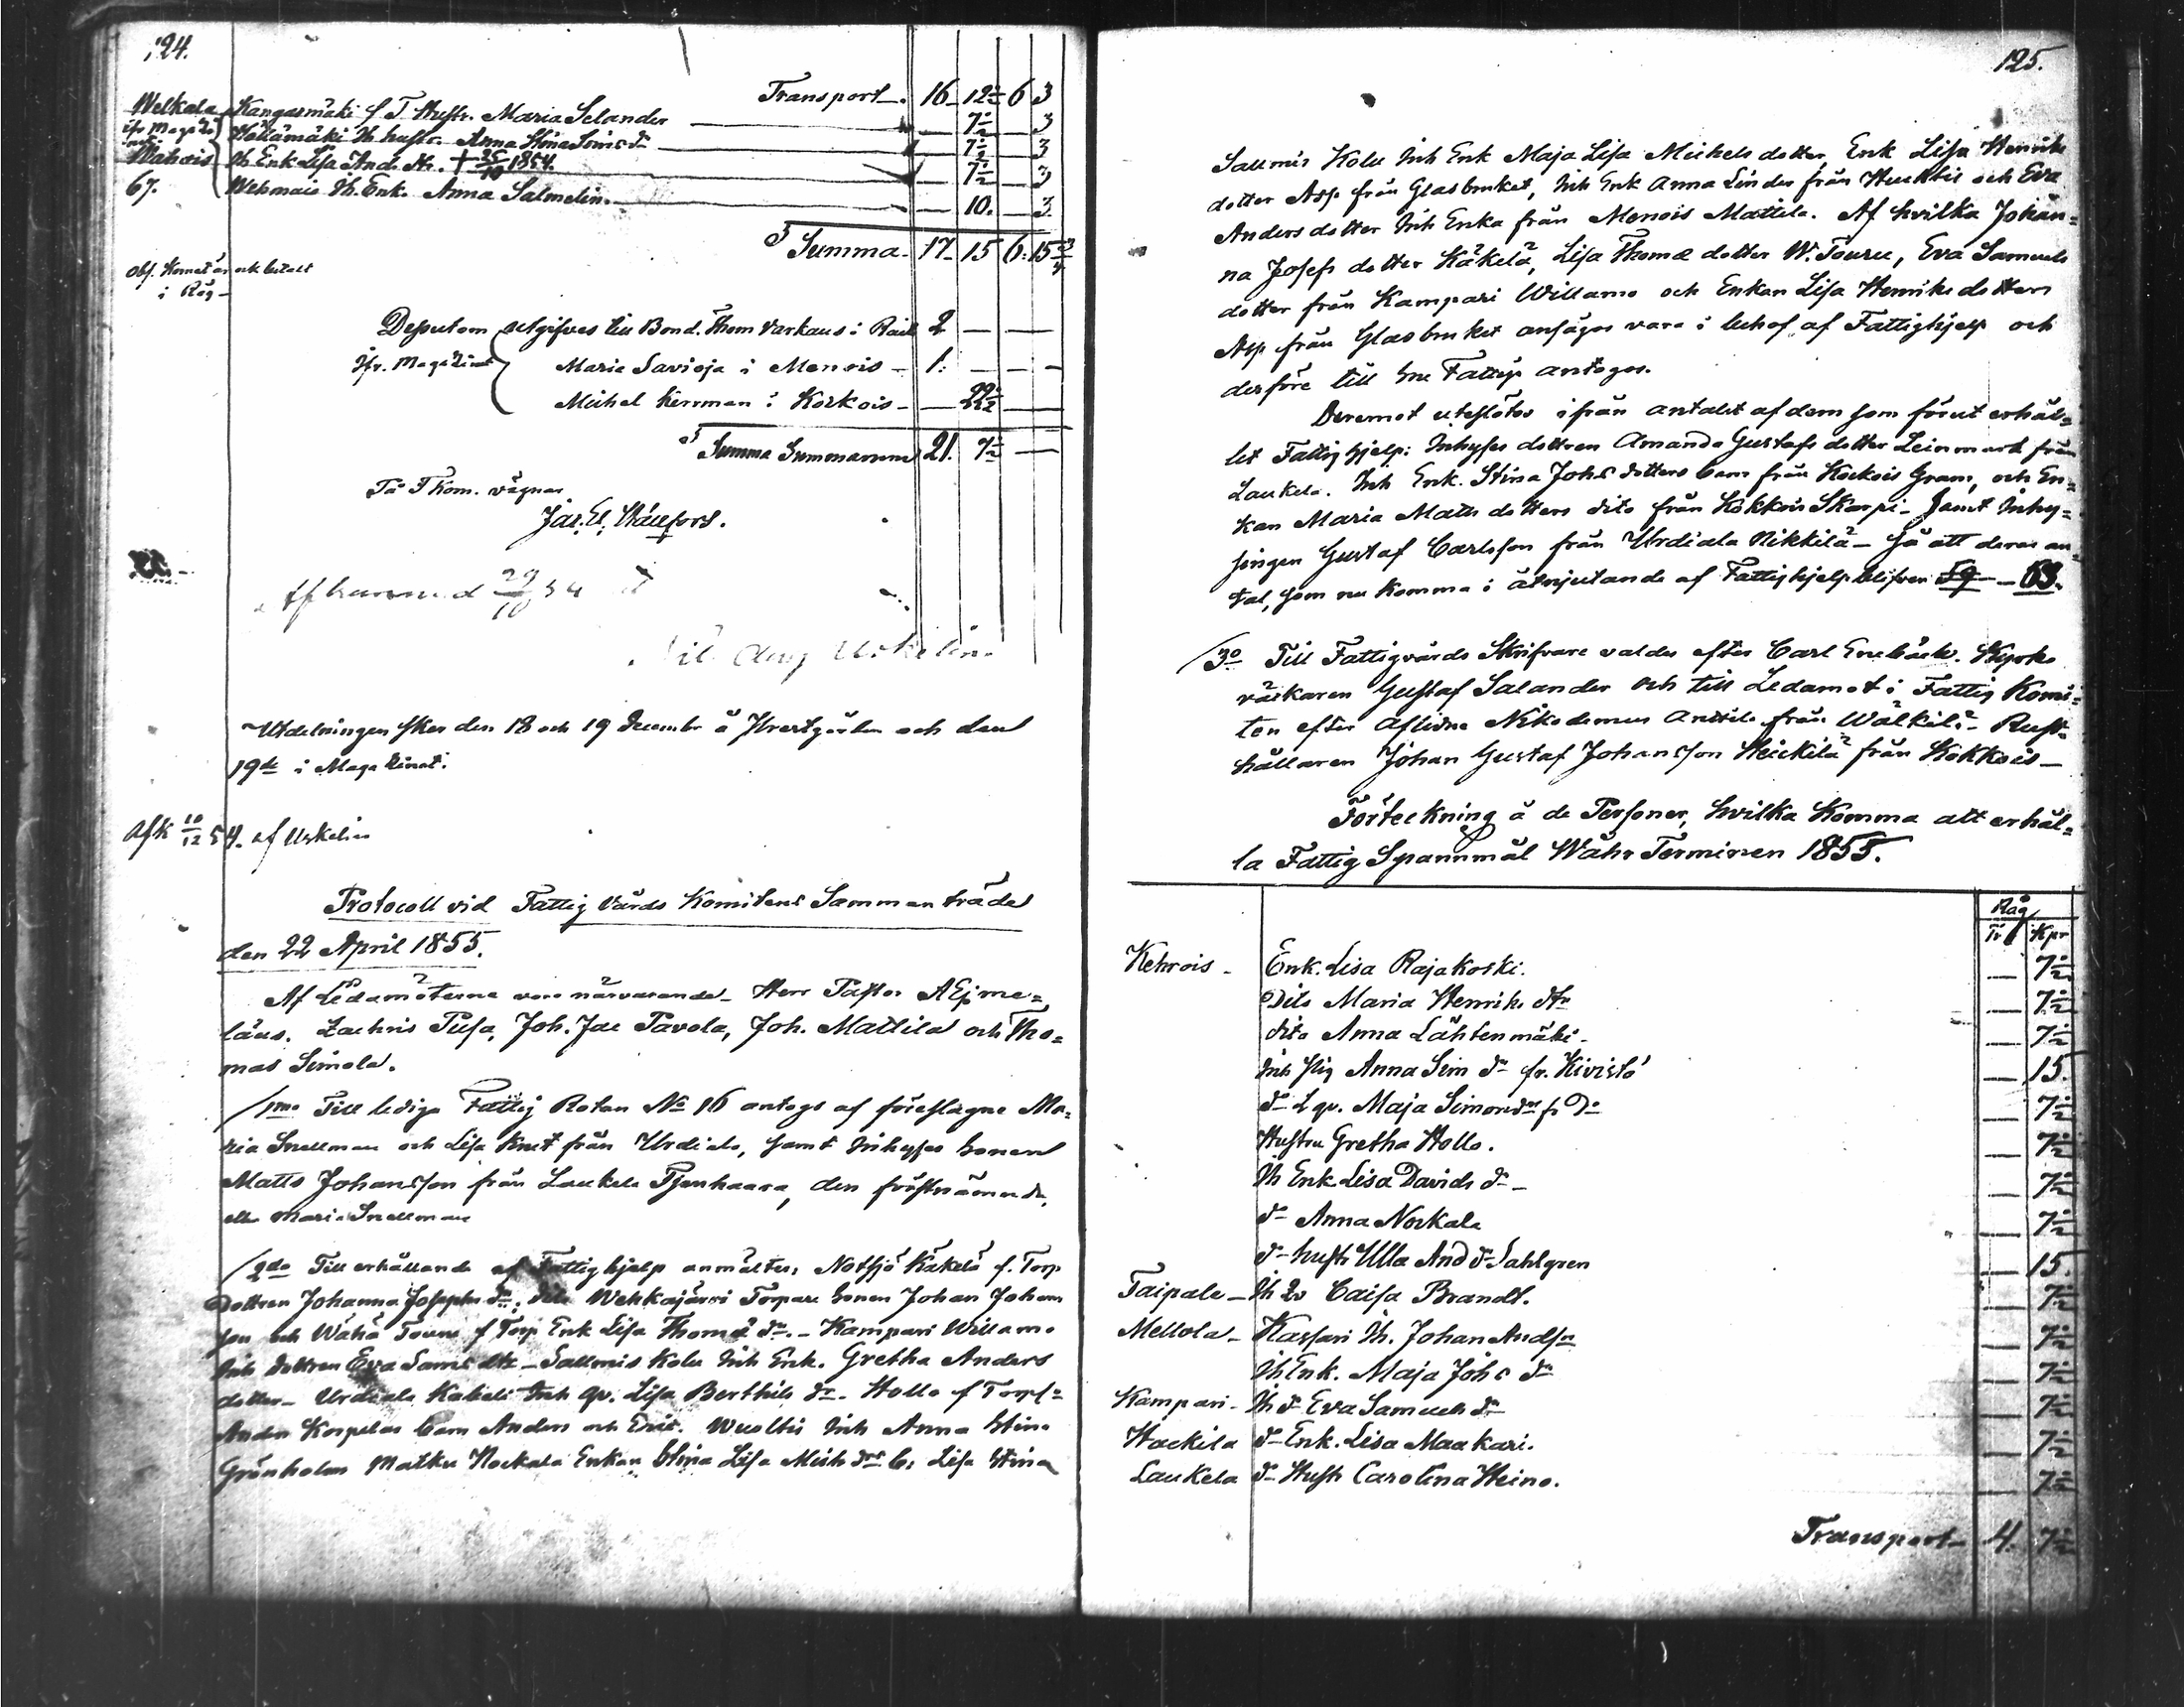 124.
Transport. 16 12½ 6 3
Welkala Kangasmäki f T Hustr. Maria Selander — 7½ — 3
ifr Magaz Hollämäki Ih hustr. Anna Stina Simsdr — 7½ — 3
Wahois Ih Enk Lisa And. dtr. + 25/10 1854. — 7½ — 3
67. Wehmais Ih. Enk. Anna Salmelin. — 10. — 3.
Summa. 17 15 6 15¾
Obs. Kornet är ock betalt
i Råg
Deputom utgifves till Bond. Thom Varkaus i Rail 2 — —
Ifr. Magazinet Maria Savioja i Menois 1. — — —
Michel Kerrman i Kokkois — 22½ —
Summa Summarum 21. 7½ —
På F Kom. vägnar
Jac. El. Wäufors.
Afkunnad 29/10 54
Nils Aug Uskelin
Utdelningen sker den 18 och 19 December å Prestgården och den
19de i Magazinet.
Afk 10/12 54. af Uskelin
Protocoll vid Fattig Vårds Komitens Sammanträde
den 22 April 1855.
Af Ledamöterne voro närvarande Herr Pastor A Ejme=
læus. Zachris Pusa, Joh. Jac Pavola, Joh. Mattila och Tho=
mas Simola.
1mo Till lediga Fattig Rotan No 16 antogs af föreslagne Ma=
ria Snellman och Lisa Knut från Urdiala, samt Inhyses sonen
Matts Johansson från Laukela Pjenhaara, den förstnämnde
eller Maria Snellman
2do Till erhållande af Fattighjelp anmältes, Notsjö Käkelä f. Torp
Dottren Johanna Josephs dr, Wehkajärvi Torpare sonen Johan Johans
son och Wähä Touru f Torp Enk Lisa Thomæ dr. Kampari Willamo
Inh dottren Eva Sams dtr Salmis Kolu Inh Enk. Gretha Anders
dotter Urdiala Inh qv. Lisa Berthils dr. Hollo f Torp=
Anders Korpelas barn Anders och Eric. Wuoltis Inh Anna Stina
Grönholm Matku Nockala Enkan Stina Lisa Mich drs b: Lisa Stina
125.
Salmis Kolu Inh Enk Maja Lisa Michels dotter, Enk Lisa Henriks
dotter Asp från Glasbruket, Inh Enk Anna Linder från Huhtis och Eva
Anders dotter Inh Enka från Menois Mattila. Af hvilka Johan=
na Josefs dotter Käkelä, Lisa Thomæ dotter W. Touru, Eva Samuels
dotter från Kampari Willamo och Enkan Lisa Henriks dotter
Asp från Glasbruket ansågos vara i behof af Fattighjelp och
derföre till sne Fattige antogos.
Deremot uteslötos ifrån antalet af dem som förut erhål=
lit Fattighjelp: Inhyses dottren Amanda Gustafs dotter Leinmark från
Laukela. Inh Enk. Stina Johs dotters barn från Kokois Gram, och En=
kan Maria Matts dotters dito från Kokkois Skarpi Samt Inhy=
singen Gustaf Carlsson från Urdiala Nikkilä så att deras an=
tal, som nu komma i åtnjutande af Fattighjelp blifver 59 — 63.
3o Till Fattigvårds Skrifvare valdes efter Carl Enebäck. Kyrko
väktaren Gustaf Salander och till Ledamot i Fattig Komi=
ten efter Aflidne Nikodemus Anttila från Wälkilä Rust=
hållaren Johan Gustaf Johansson Heickilä från Kokkois
Förteckning å de Personer, hvilka komma att erhål=
la Fattig Spannmål Wåhr Terminen 1855.
Råg
Tr Kpr
Kehrois Enk. Lisa Rajakoski. — 7½
Dito Maria Henriks dtr — 7½
dito Anna Lähtenmäki — 7½
Inh Pig Anna Sim dr fr. Kivistö — 15.
dr Maja Simons dr fr Do — 7½
Hustru Gretha Hollo. — 7½
Ih Enk Lisa Davids dr — 7½
do Anna Nockala — 7½
do hustr Ulla And dr Sahlgren — 15.
Taipale Ih Caisa Brandt. — 7½
Mellola Kassari Ih. Johan Andsn — 7½
Ih Enk. Maja Johs dr — 7½
Kampari Ih dr Eva Samuels dr — 7½
Hackila do Enk. Lisa Maakari. — 7½
Laukela do Hustr Carolina Heino. — 7½
Transport 4. 7½